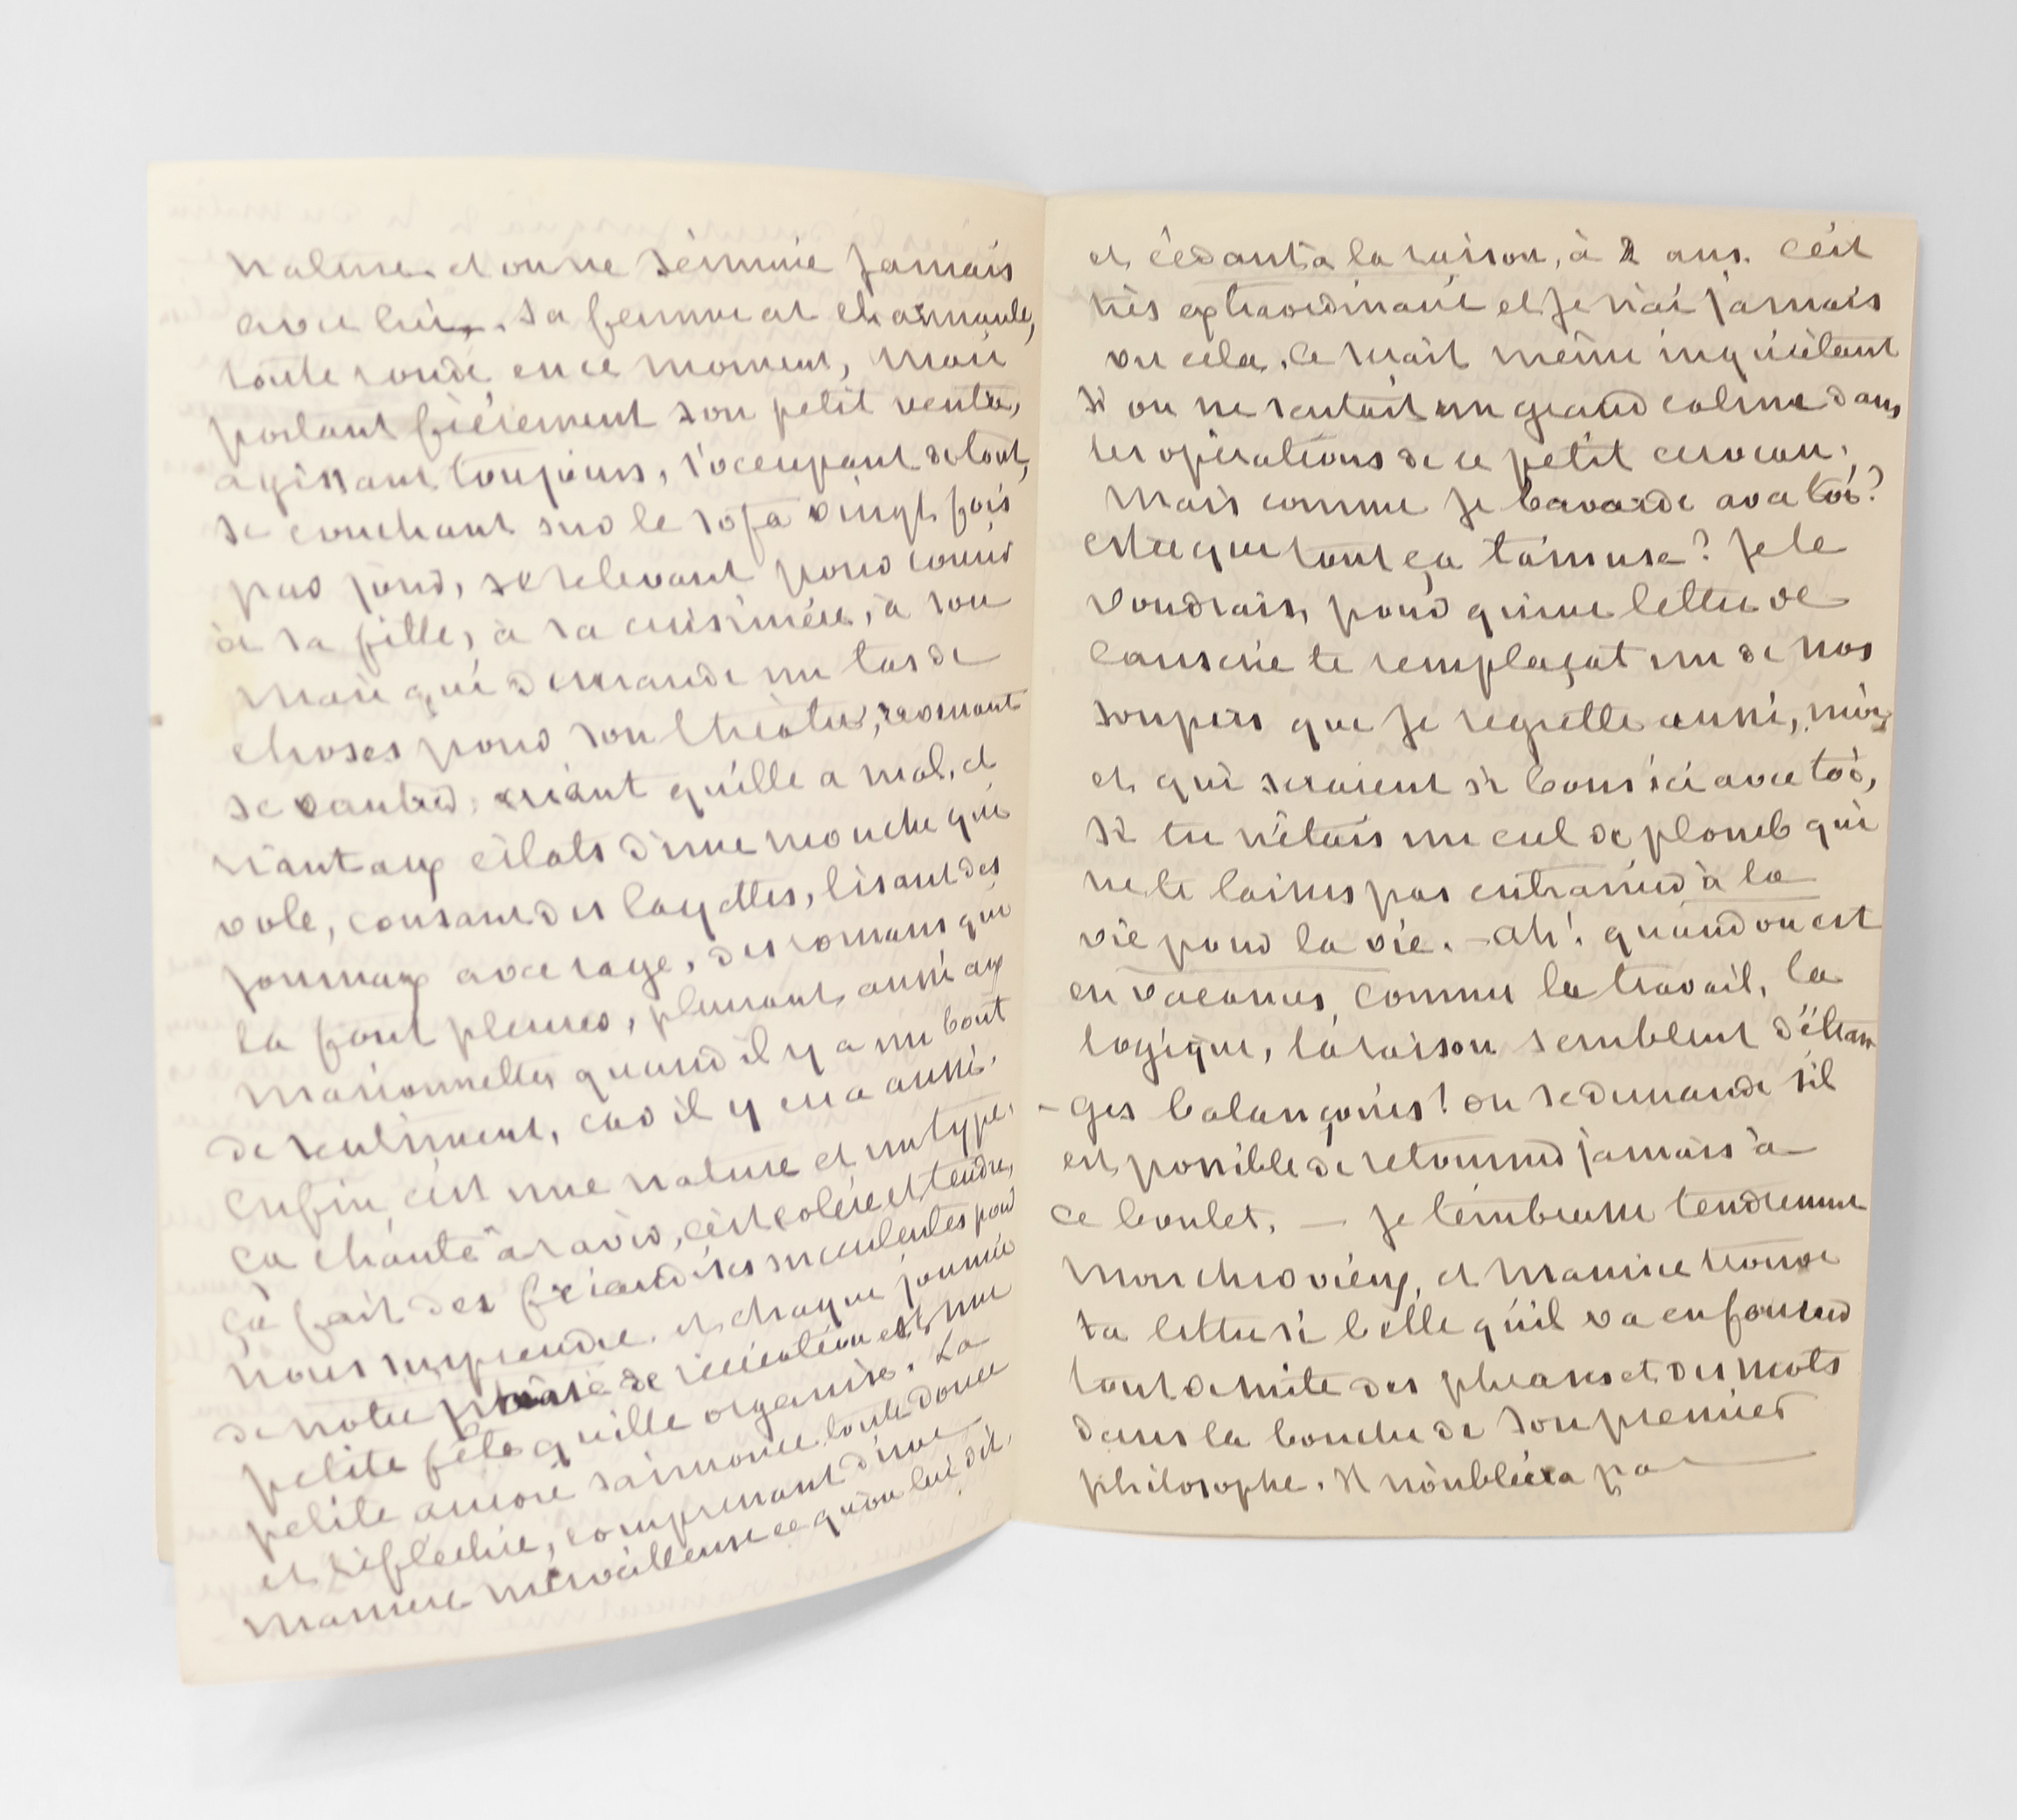 nature. et on ne s'ennuie jamais
avec lui. Sa femme est charmante,
toute ronde en ce moment, mais
portant fièrement son petit ventre,
agissant toujours, s'occupant de tout,
se couchant sur le sofa vingt fois
par jour, se relevant pour courir
à sa fille, à sa cuisinière, à son
mari qui demande un tas de
choses pour son théâtre, revenant
se vautrer, criant qu'elle a mal, et
riant aux éclats d'une mouche qui
vole, cousant des layettes, lisant des
journaux avec rage, des romans qui
la font pleurer, pleurant aussi aux
marionnettes quand il y a un bout
de sentiment, car il y en a aussi.
Enfin c'est une nature et un type.
ça chante à ravir, c'est colère et tendre,
ça fait des friandises succulentes pour
nous surprendre. et chaque journée
de notre phase de récréation est une
petite fête qu'elle organise. La
petite aurore s'annonce toute douce
et réfléchie, comprenant d'une
manière merveilleuse ce qu'on lui dit
et cédant à la raison, à 2 ans. C'est
très extraordinaire et je n'ai jamais
vu cela. Ce serait même inquiétant
si on ne sentait un grand calme dans
les opérations de ce petit cerveau.
Mais comme je bavarde avec toi?
est ce que tout ça t'amuse? Je le
voudrais, pour qu'une lettre de
causerie te remplaçat un de nos
soupers que je regrette aussi, moi,
et qui seraient si bons ici avec toi,
si tu n'étais un cul de plomb qui
ne te laisses pas entraîner à la
vie pour la vie. – Ah! quand on est
en vacances, comme le travail, la
logique, la raison semblent d'étran
-ges balançoires! on se demande s'il
est possible de retourner jamais à
ce boulet. — Je t'embrasse tendrement
mon cher vieux, et Maurice trouve
ta lettre si belle qu'il va en fourrer
tout de suite des phrases et des mots
dans la bouche de son premier
philosophe. Il n'oubliera pa